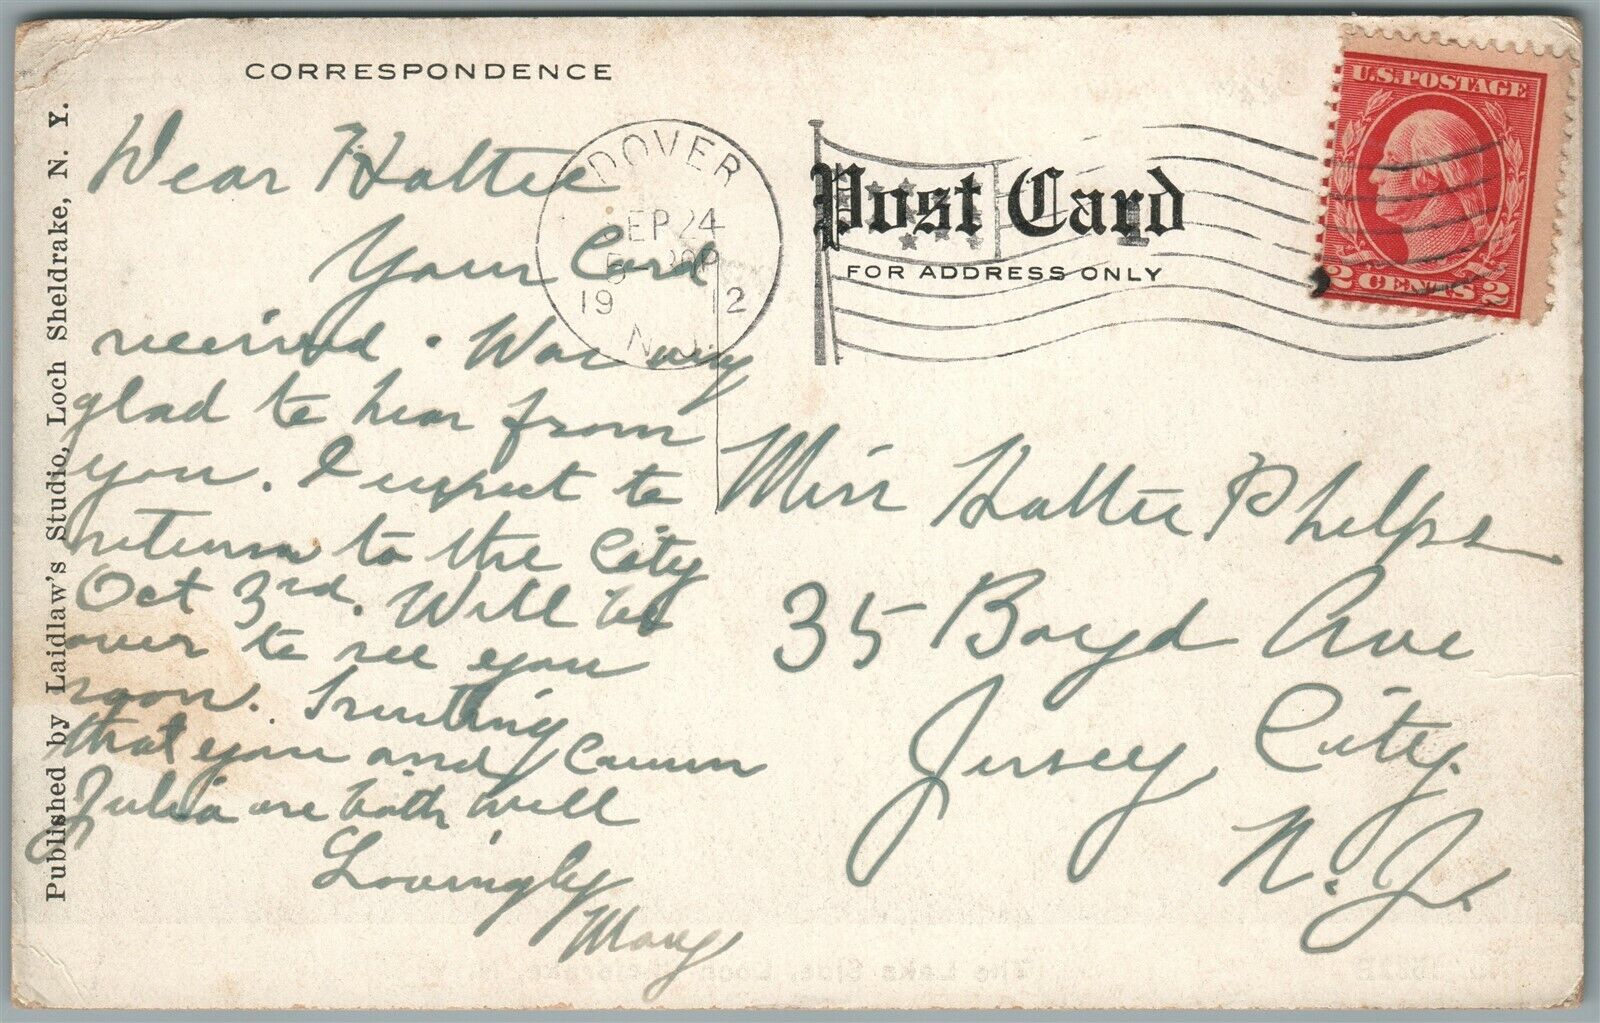 CORRESPONDENCE
Published by Laidlaw's Studio, Loch Sheldrake, N. Y.
Dear Hattie
Your Card
received. Was very
glad to hear from
you. I expect to
return to the City
Oct 3rd. Will be
over to see you
soon. Trusting
that you and Cousin
Julia are both well
Lovingly
Mary
DOVER
SEP 24
5-30P
19 12
N.J.
Post Card
FOR ADDRESS ONLY
U.S. POSTAGE
2 CENTS 2
Miss Hattie Phelps
35 Boyd Ave
Jersey City.
N. J.